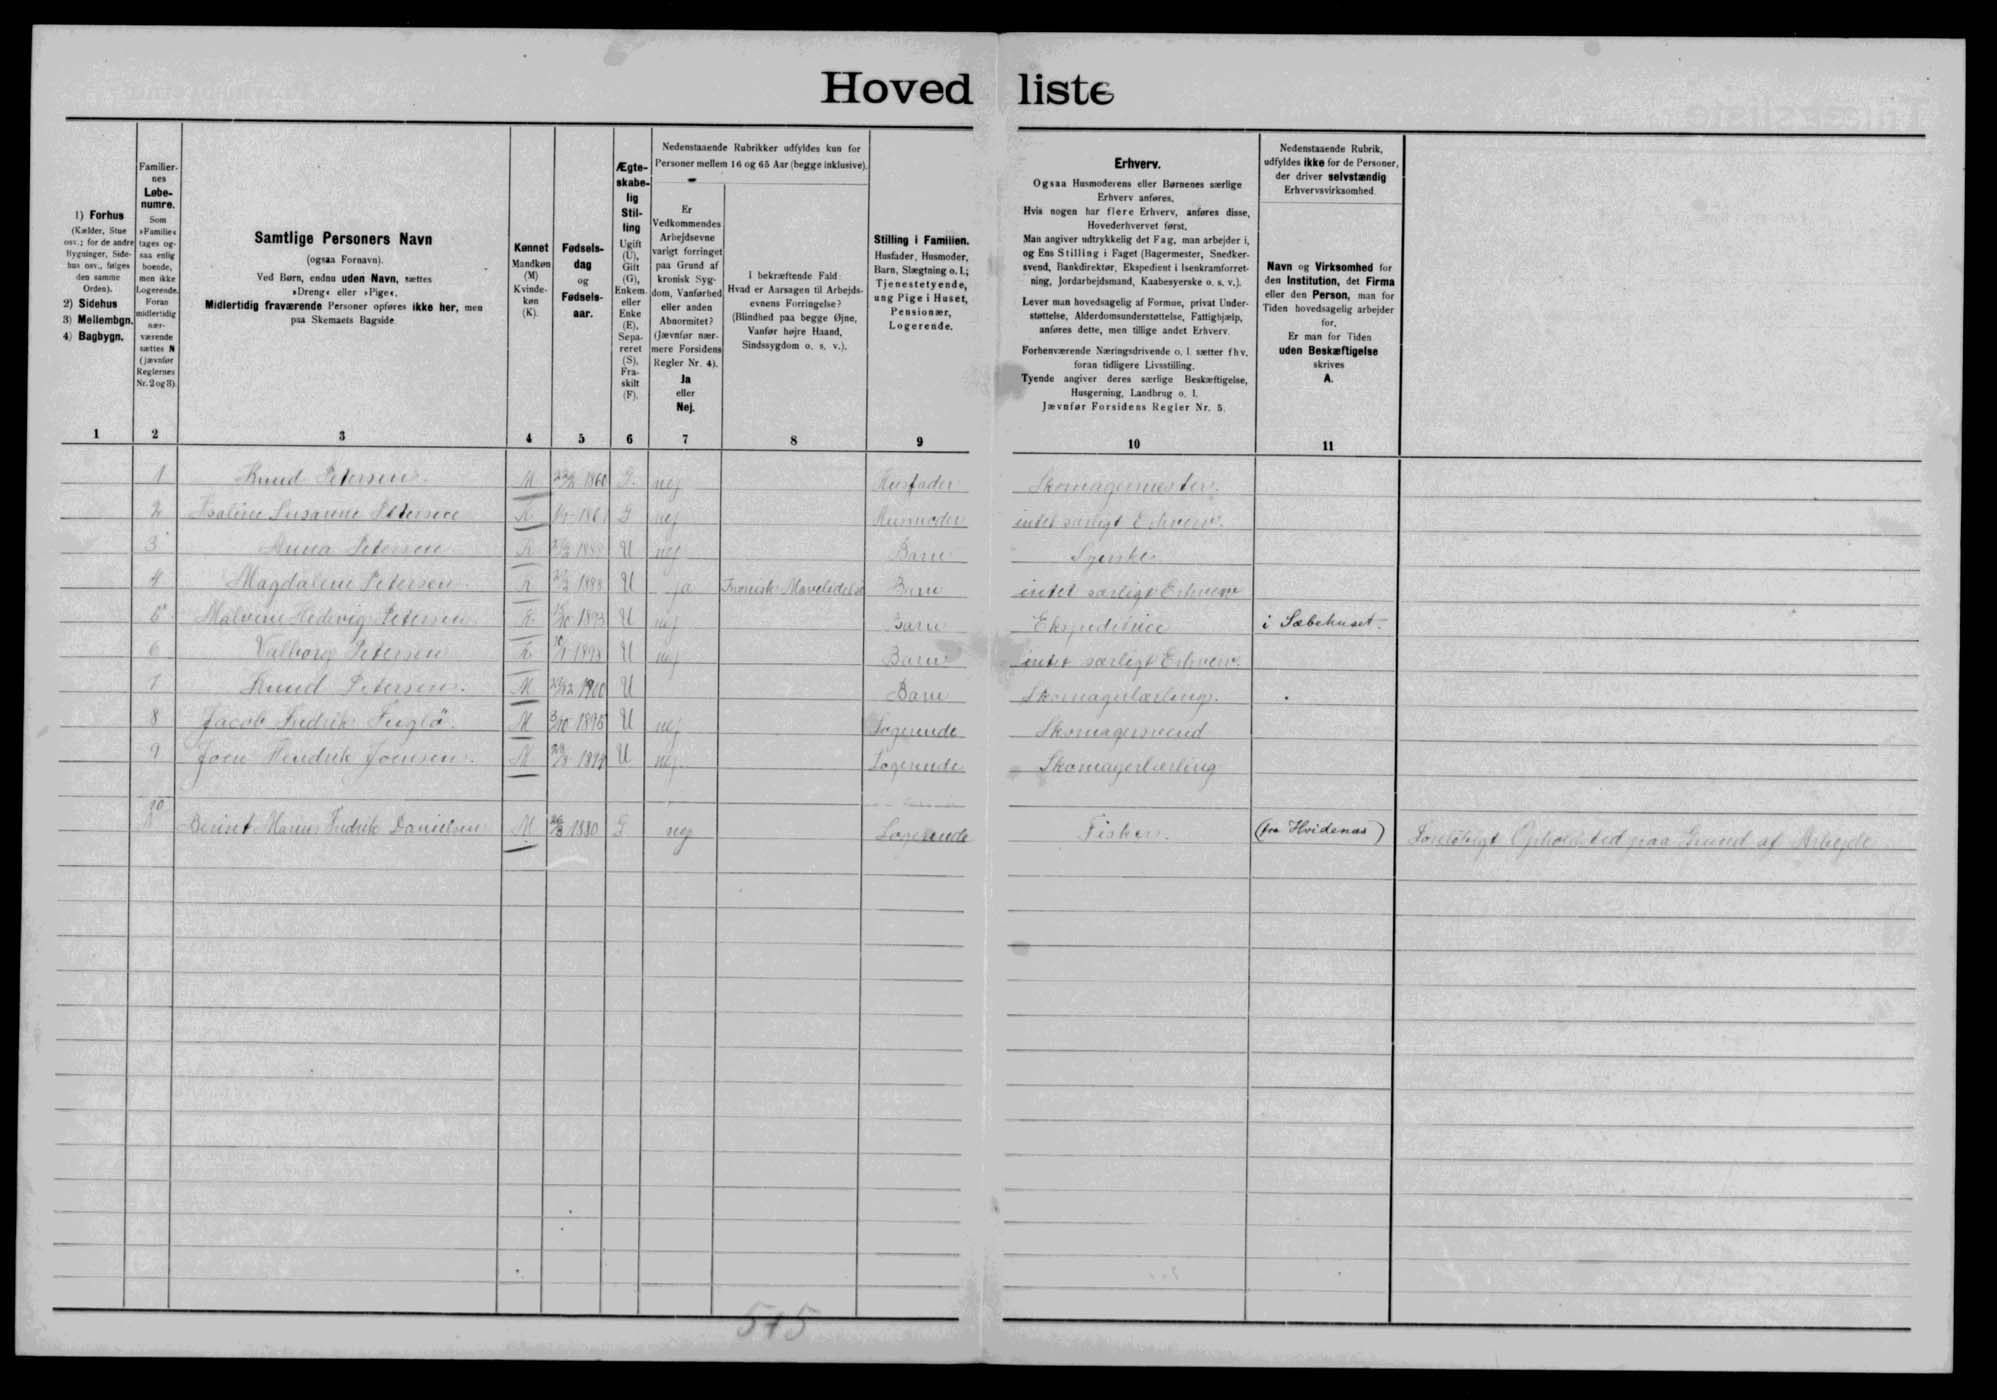 Hovedliste
1) Forhus
(Kælder, Stue
osv.; for de andre
Bygninger, Side-
hus osv., følges
den samme
Orden).
2) Sidehus
3) Mellembgn.
4) Bagbygn.
Familier-
nes
Løbe-
numre.
Som
»Familie«
tages og-
saa enlig
boende,
men ikke
Logerende.
Foran
midlertidig
nær-
værende
sættes N
(jævnfør
Reglernes
Nr. 2 og 3).
Samtlige Personers Navn
(ogsaa Fornavn).
Ved Børn, endnu uden Navn, sættes
»Dreng« eller »Pige«.
Midlertidig fraværende Personer opføres ikke her, men
paa Skemaets Bagside.
Kønnet
Mandkøn
(M)
Kvinde-
køn
(K).
Fødsels-
dag
og
Fødsels-
aar.
Ægte-
skabe-
lig
Stil-
ling
Ugift
(U),
Gift
(G),
Enkem.
eller
Enke
(E),
Sepa-
reret
(S),
Fra-
skilt
(F).
Nedenstaaende Rubrikker udfyldes kun for
Personer mellem 16 og 65 Aar (begge inklusive).
Er
Vedkommendes
Arbejdsevne
varigt forringet
paa Grund af
kronisk Syg-
dom, Vanførhed
eller anden
Abnormitet?
(Jævnfør nær-
mere Forsidens
Regler Nr. 4).
Ja
eller
Nej.
I bekræftende Fald
Hvad er Aarsagen til Arbejds-
evnens Forringelse?
(Blindhed paa begge Øjne,
Vanfør højre Haand,
Sindssygdom o. s. v.).
Stilling i Familien.
Husfader, Husmoder,
Barn, Slægtning o. l.;
Tjenestetyende,
ung Pige i Huset,
Pensionær,
Logerende.
Erhverv.
Ogsaa Husmoderens eller Børnenes særlige
Erhverv anføres.
Hvis nogen har flere Erhverv, anføres disse,
Hovederhvervet først.
Man angiver udtrykkelig det Fag, man arbejder i,
og Ens Stilling i Faget (Bagermester, Snedker-
svend, Bankdirektør, Ekspedient i Isenkramforret-
ning, Jordarbejdsmand, Kaabesyerske o. s. v.).
Lever man hovedsagelig af Formue, privat Under-
støttelse, Alderdomsunderstøttelse, Fattighjælp,
anføres dette, men tillige andet Erhverv.
Forhenværende Næringsdrivende o. l. sætter fhv.
foran tidligere Livsstilling.
Tyende angiver deres særlige Beskæftigelse,
Husgerning, Landbrug o. l.
Jævnfør Forsidens Regler Nr. 5.
Nedenstaaende Rubrik,
udfyldes ikke for de Personer,
der driver selvstændig
Erhvervsvirksomhed.
Navn og Virksomhed for
den Institution, det Firma
eller den Person, man for
Tiden hovedsagelig arbejder
for.
Er man for Tiden
uden Beskæftigelse
skrives
A.
1 2 3 4 5 6 7 8 9 10 11
1 Knud Petersen. M 1860 G. nej Husfader Skomagermester.
2 Susanne Petersen K G nej Husmoder intet særligt Erhverv.
3 Anna Petersen K U nej Barn Syerske
4 Magdalene Petersen K U ja Kronisk Mavelidelse Barn intet særligt Erhverv
5 Malvine Hedevig Petersen K 1893 U nej Barn Ekspeditrice i Sæbehuset.
6 Valborg Petersen K U nej Barn intet særligt Erhverv.
7 Knud Petersen. M 1900 U Barn Skomagerlærling.
8 Jacob Fredrik Fuglø. M U nej Logerende Skomagersvend
9 Joen Hendrik Joensen. M U nej Logerende Skomagerlærling
10 Marius Fredrik Danielsen M 1880 G nej Logerende Fisker. (fra Hvidenæs) Opholdsted paa Grund af Arbejde
515